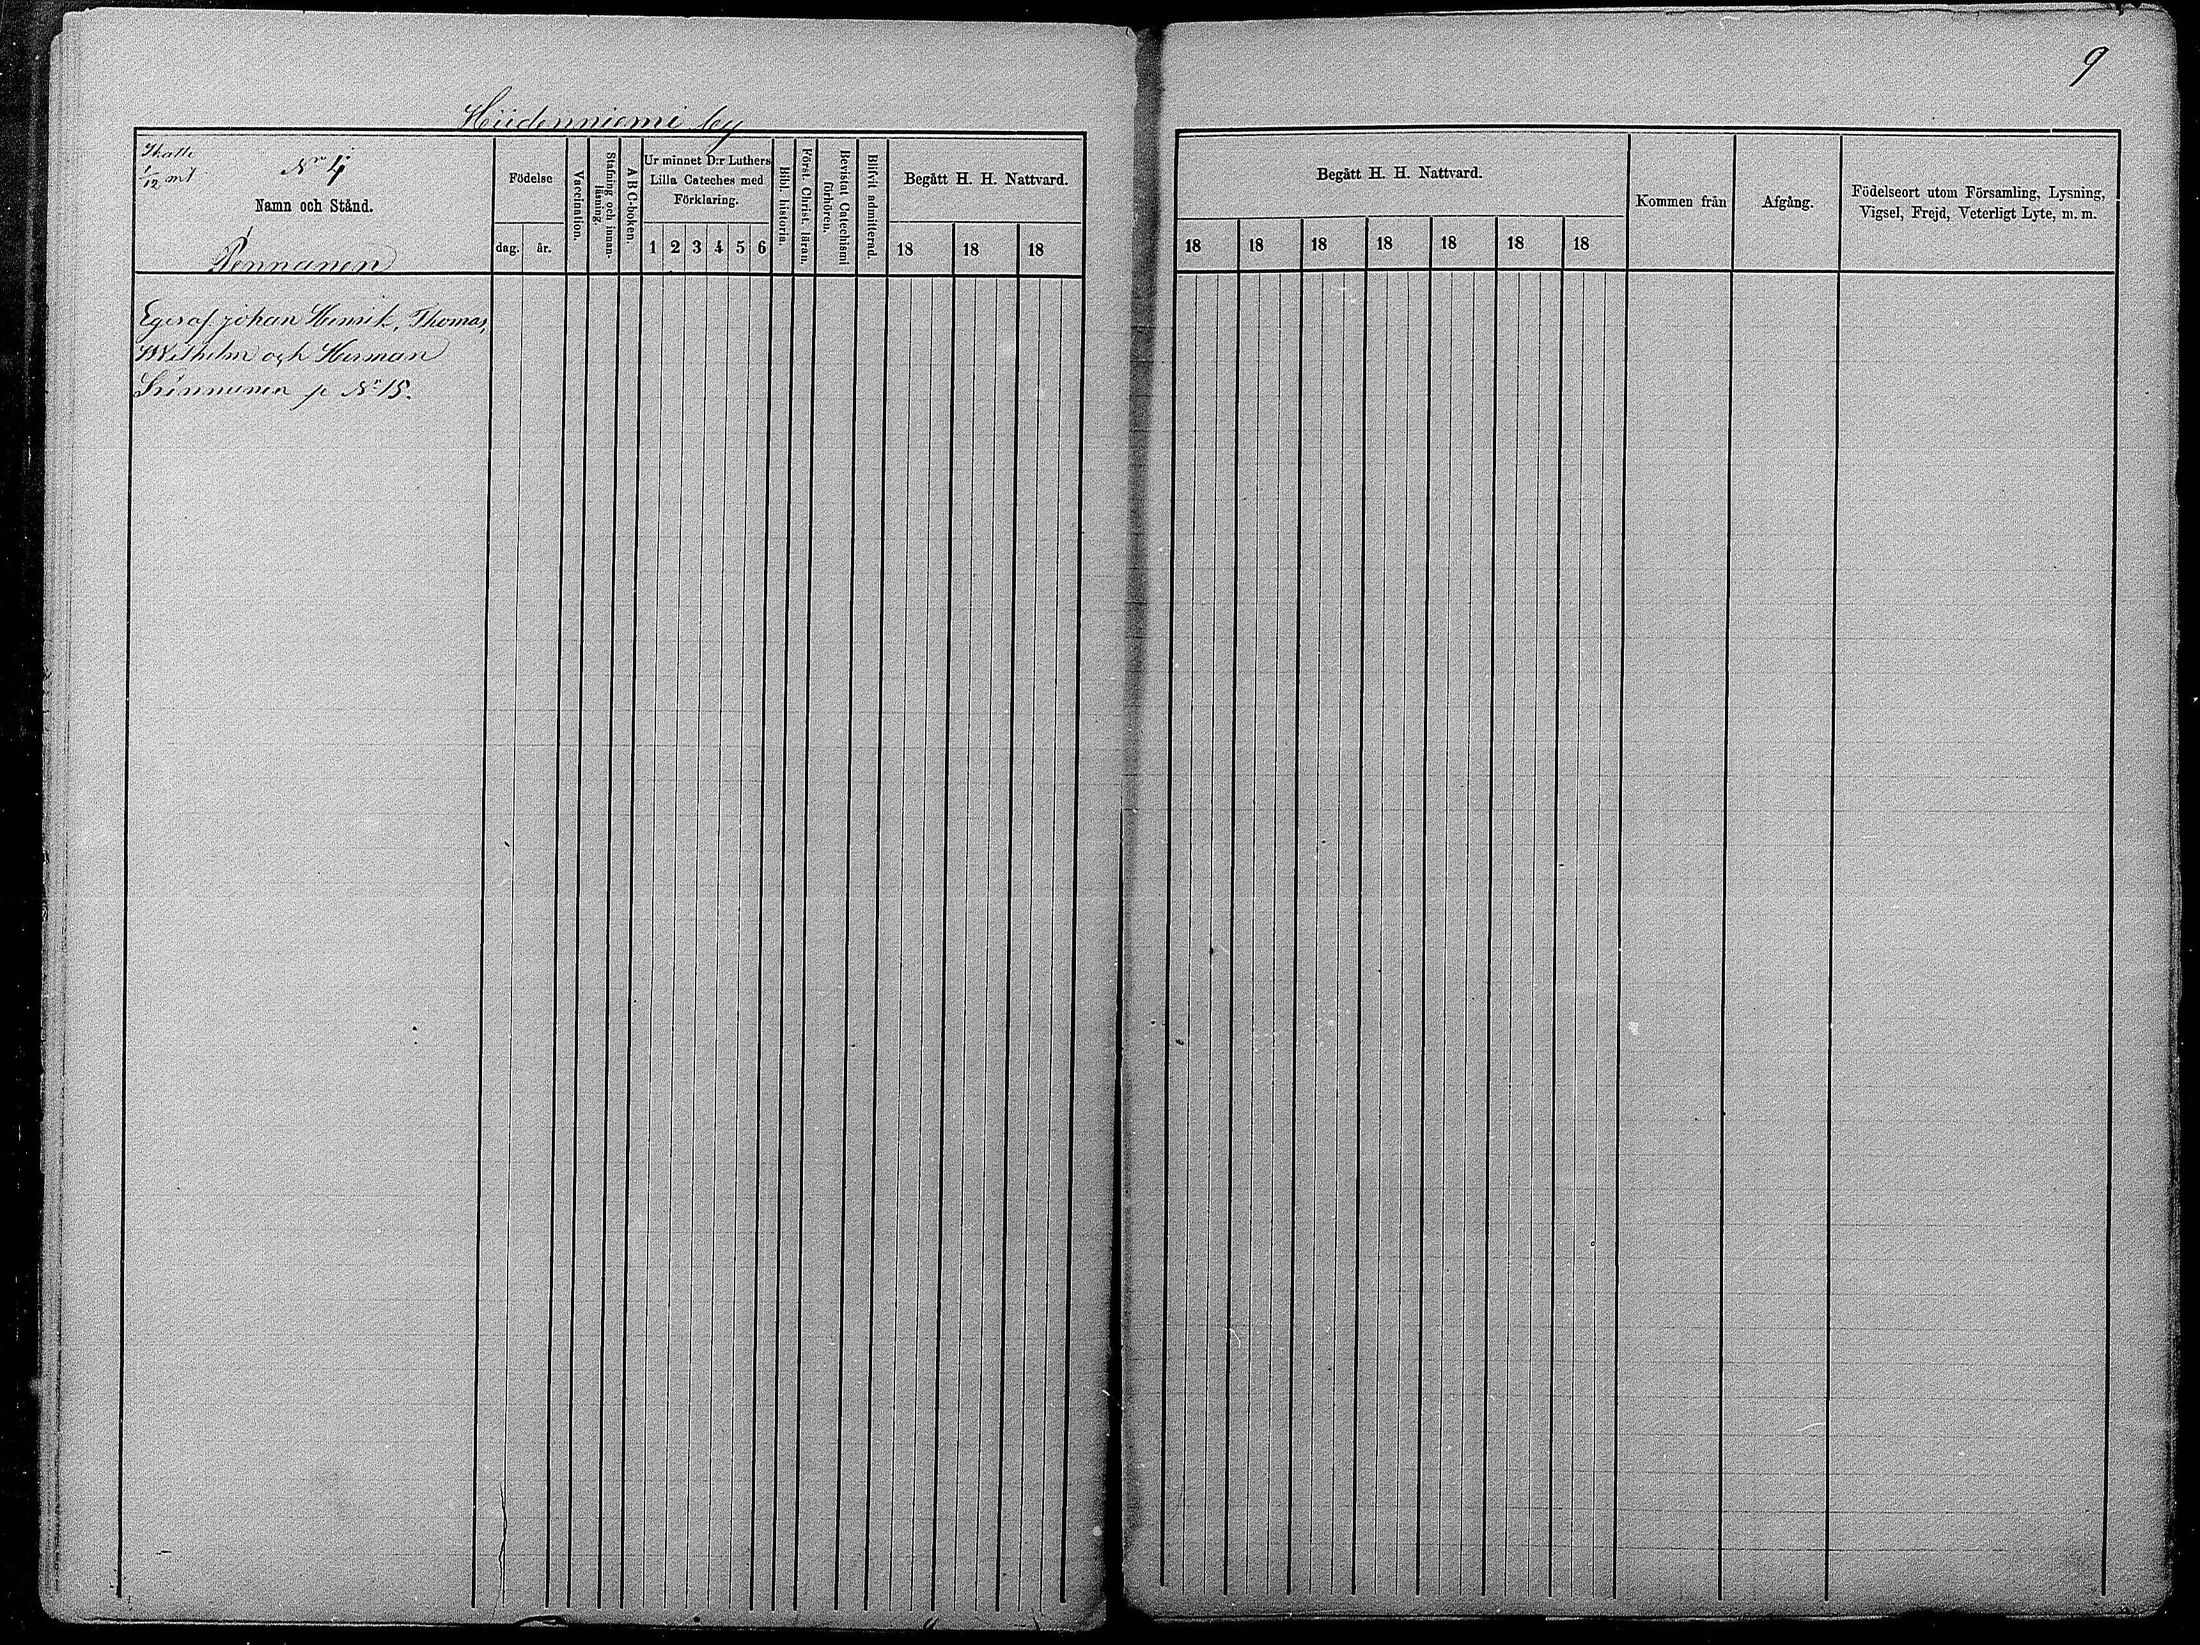 9
Hiidenniemi by
Skatte
1/12 mt
No 4
Namn och Stånd.
Pennanen
Födelse
dag.
år.
Vaccination.
Stafning och innan-
läsning.
A B C-boken.
Ur minnet D:r Luthers
Lilla Cateches med
Förklaring.
1 2 3 4 5 6
Bibl. historia.
Först. Christ. läran.
Bevistat Catechismi
förhören.
Blifvit admitterad.
Begått H. H. Nattvard.
18 18 18
Begått H. H. Nattvard.
18 18 18 18 18 18 18
Kommen från
Afgång.
Födelseort utom Församling, Lysning,
Vigsel, Frejd, Veterligt Lyte, m. m.
Eges af Johan Henrik, Thomas,
Wilhelm och Herman
Kinnunen p No 15.